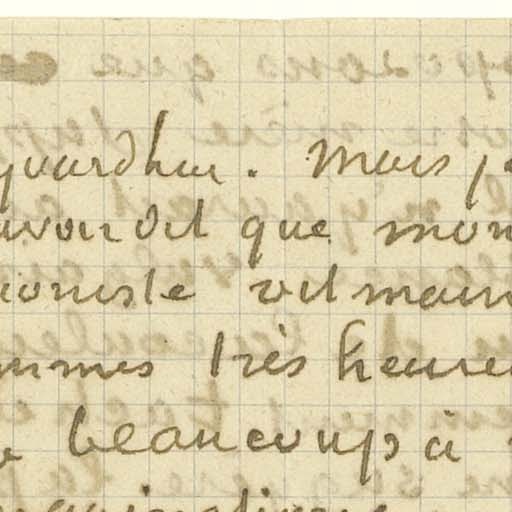 jourdhui. Mais je
avoir dit que mon
ioniste vit main
mmes très heureu
beaucoup à